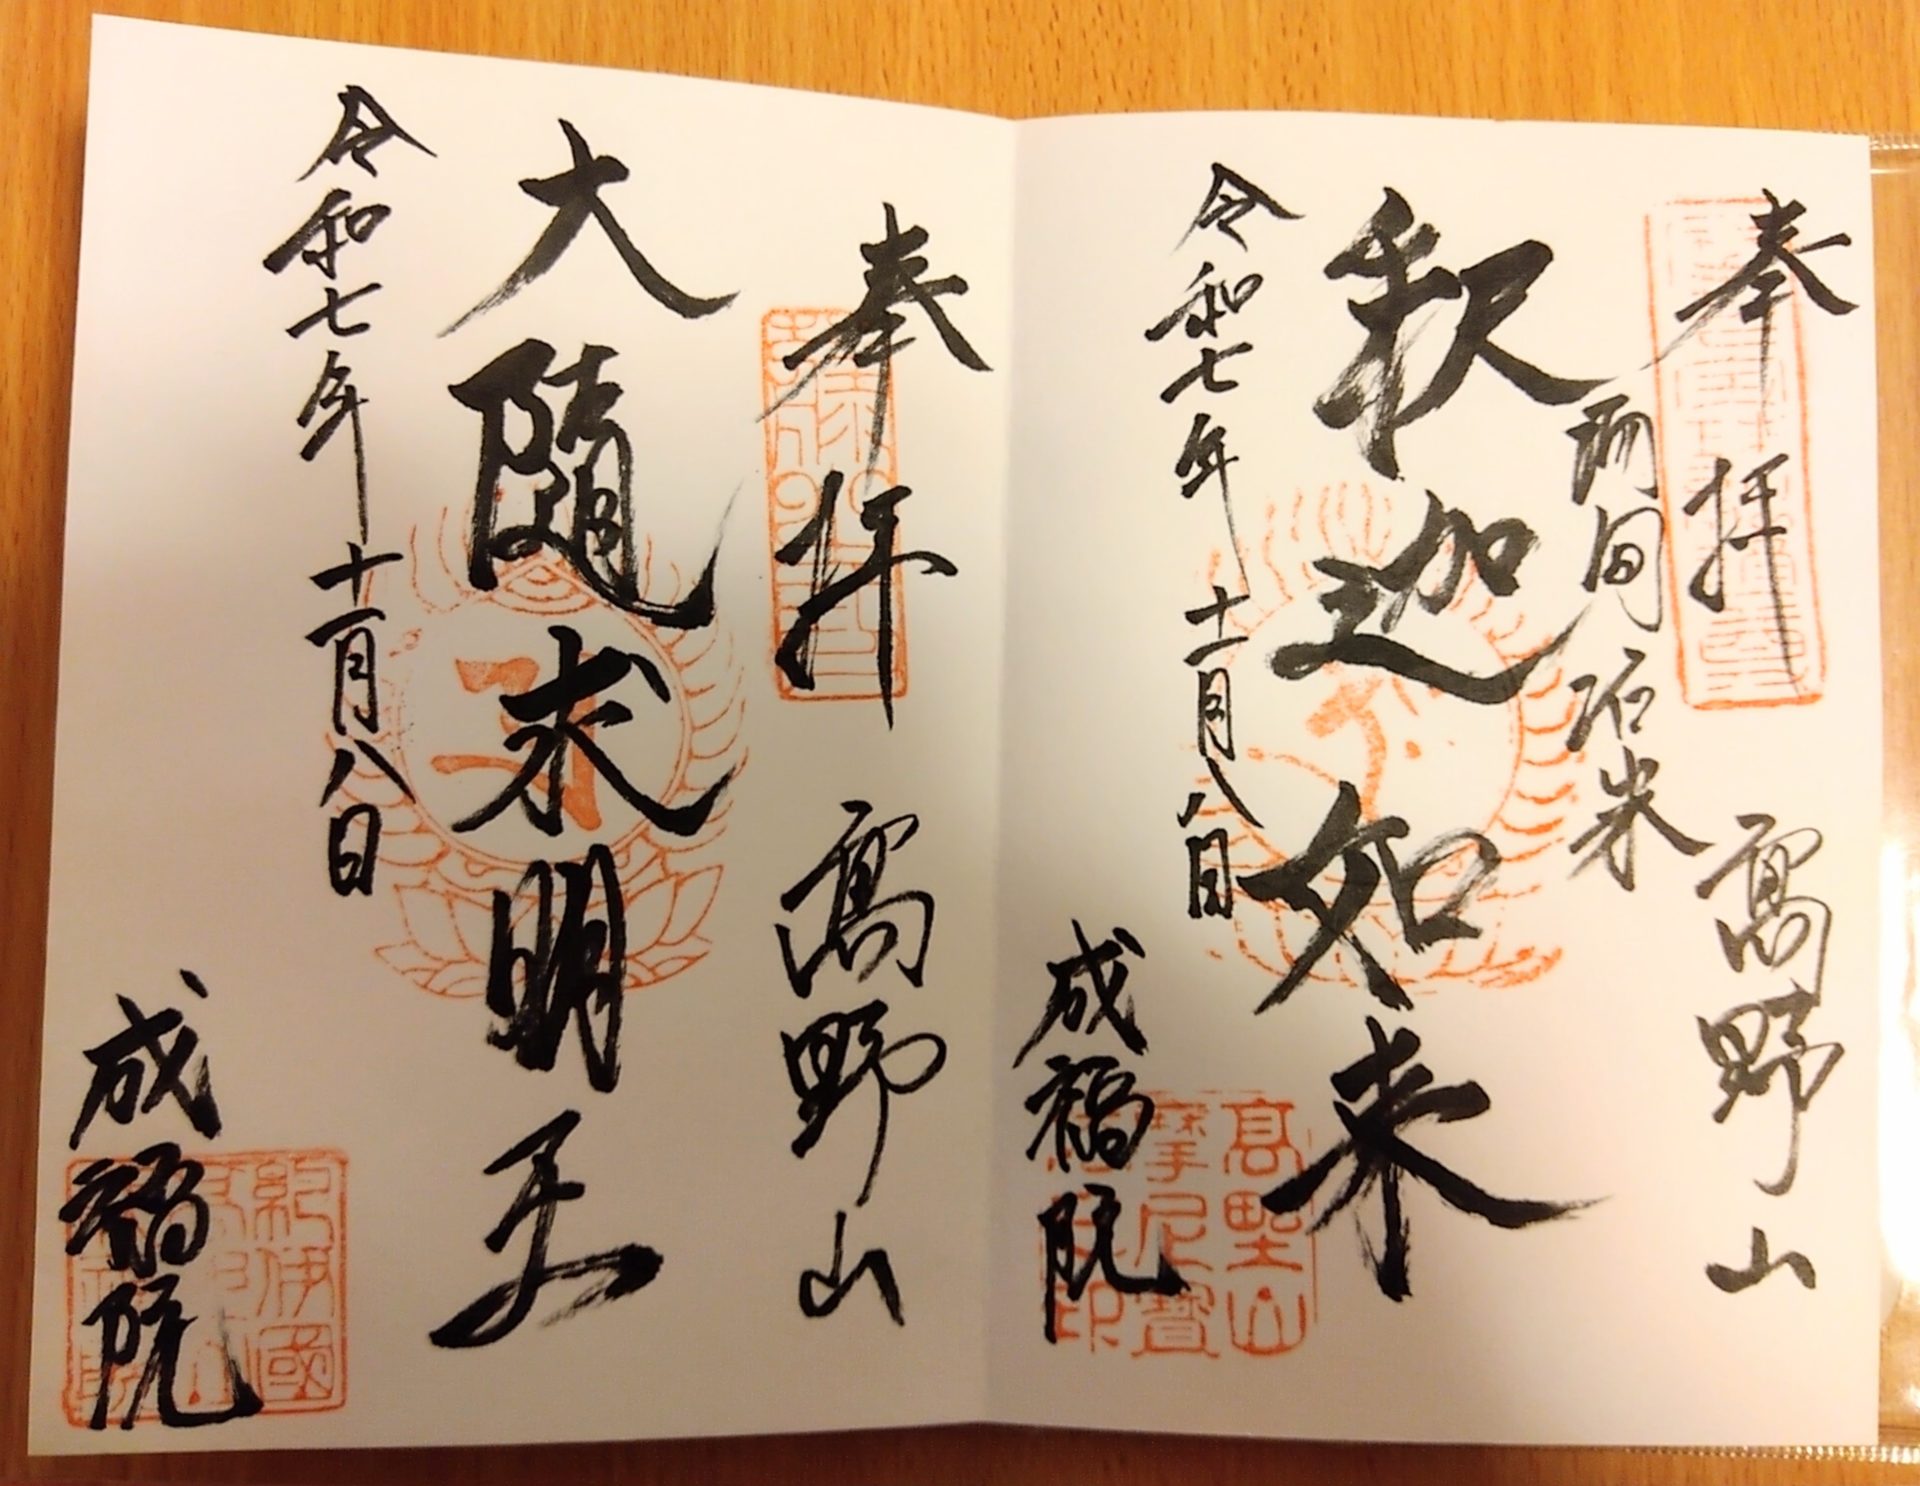 奉拝 高野山
釈迦如来
令和七年十一月八日
成福院
高野山
摩尼寶
奉拝 高野山
大随求明王
令和七年十一月八日
成福院
紀伊國